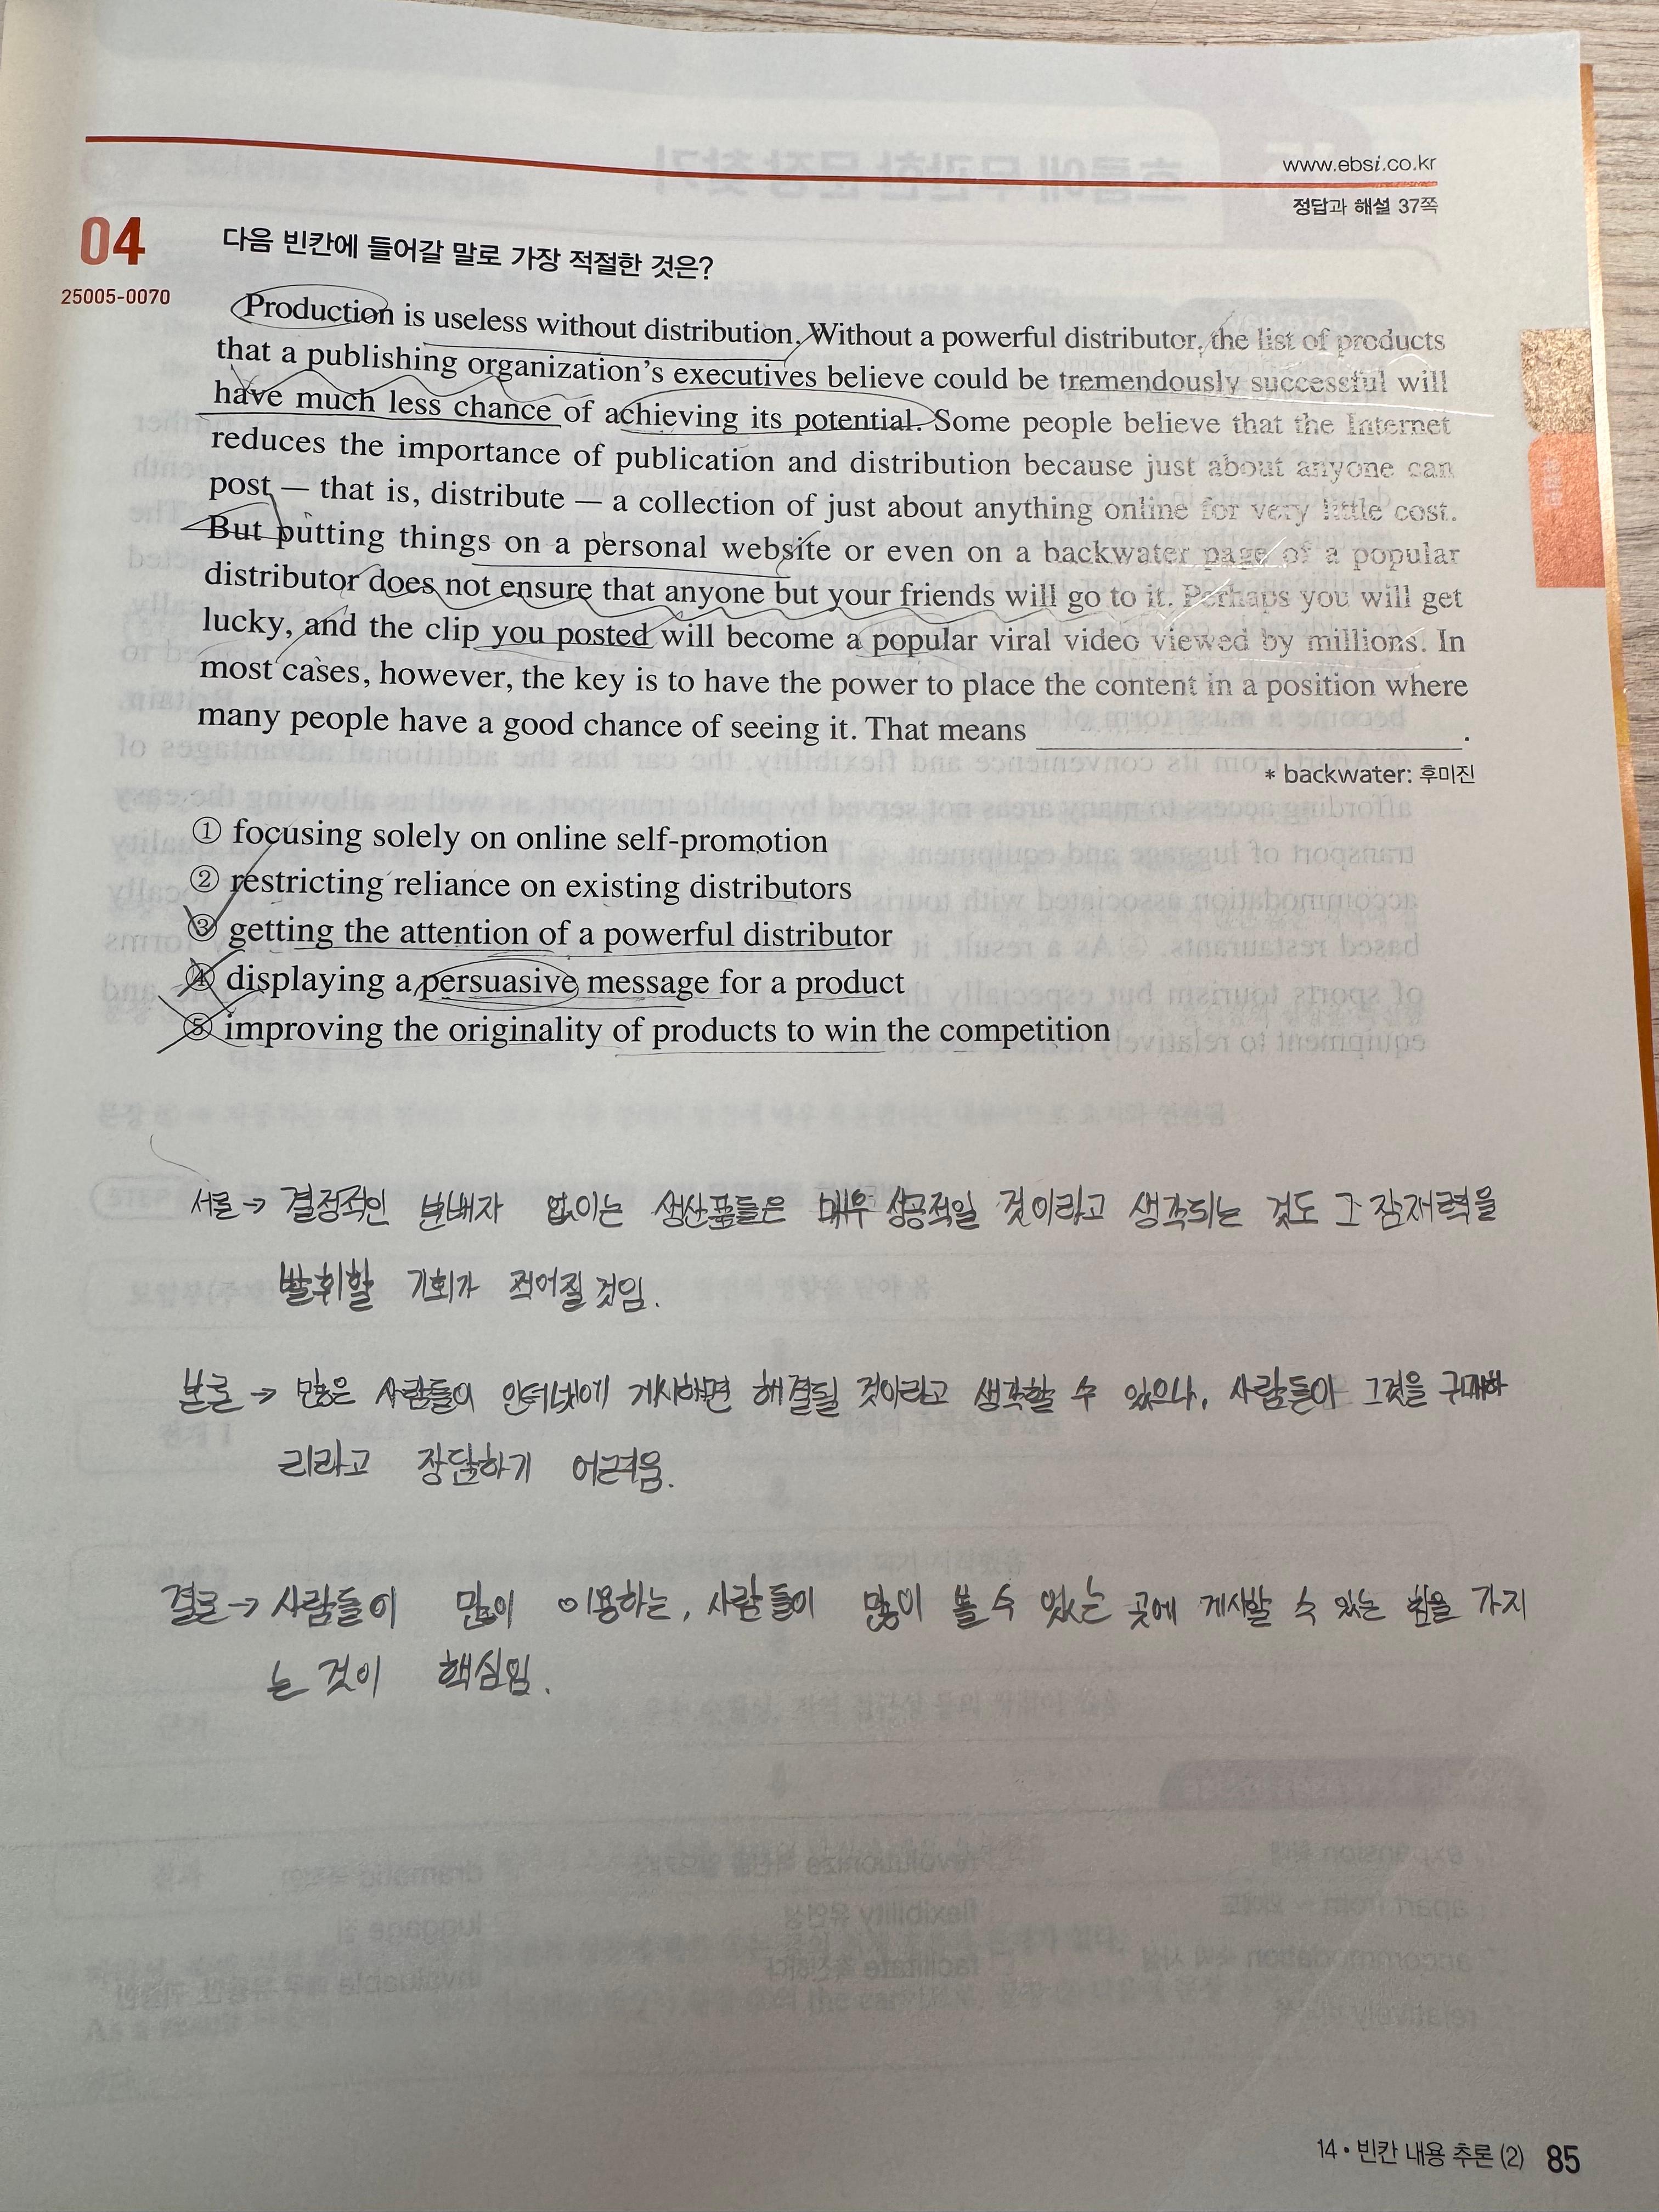 www.ebsi.co.kr
정답과 해설 37쪽
04
25005-0070
다음 빈칸에 들어갈 말로 가장 적절한 것은?
Production is useless without distribution. Without a powerful distributor, the list of products
that a publishing organization's executives believe could be tremendously successful will
have much less chance of achieving its potential. Some people believe that the Internet
reduces the importance of publication and distribution because just about anyone can
post — that is, distribute — a collection of just about anything online for very little cost.
But putting things on a personal website or even on a backwater page of a popular
distributor does not ensure that anyone but your friends will go to it. Perhaps you will get
lucky, and the clip you posted will become a popular viral video viewed by millions. In
most cases, however, the key is to have the power to place the content in a position where
many people have a good chance of seeing it. That means .
* backwater: 후미진
① focusing solely on online self-promotion
② restricting reliance on existing distributors
③ getting the attention of a powerful distributor
④ displaying a persuasive message for a product
⑤ improving the originality of products to win the competition
서론 → 결정적인 분배자 없이는 생산품들은 매우 성공적일 것이라고 생각되는 것도 그 잠재력을
발휘할 기회가 적어질 것임.
본론 → 많은 사람들이 인터넷에 게시하면 해결될 것이라고 생각할 수 있으나, 사람들이 그것을 구매하
리라고 장담하기 어려움.
결론 → 사람들이 많이 이용하는, 사람들이 많이 볼 수 있는 곳에 게시할 수 있는 힘을 가지
는 것이 핵심임.
14 • 빈칸 내용 추론 (2) 85